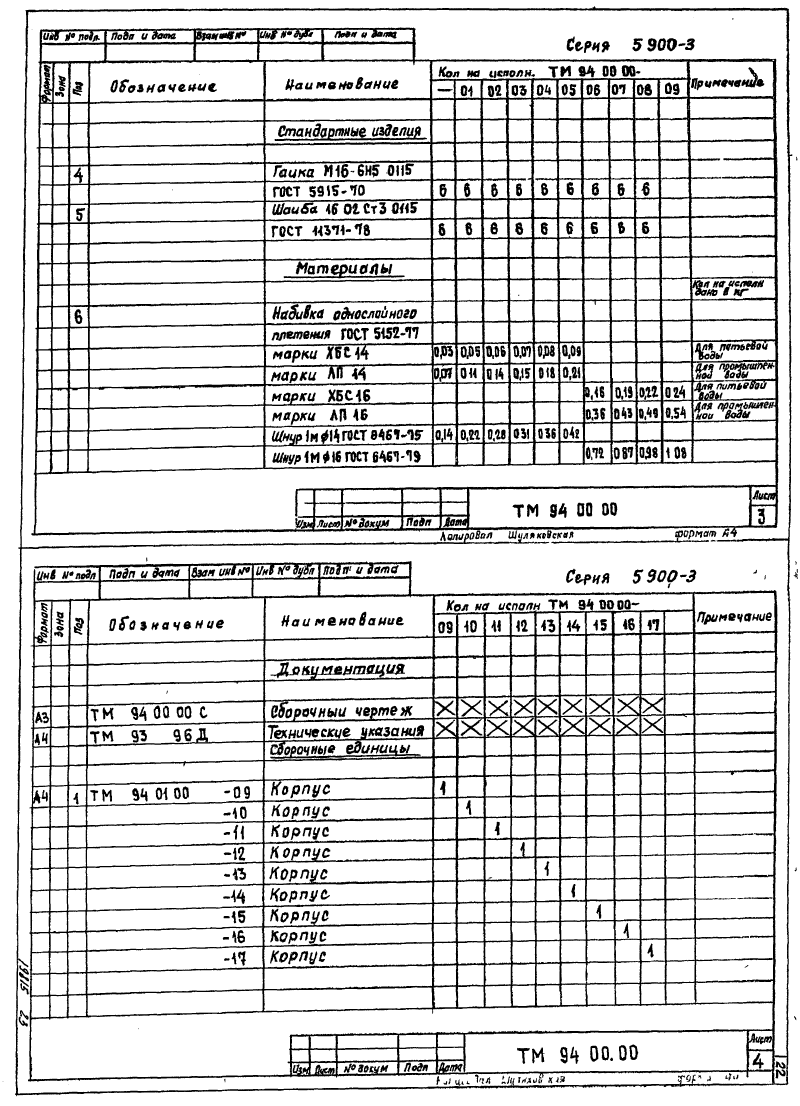 Инв № подл. Подп и дата Взам инв № Инв № дубл Подп и дата
Серия 5 900-3
Формат Зона Поз Обозначение Наименование Кол на исполн. ТМ 94 00 00- Примечание
— 01 02 03 04 05 06 07 08 09
Стандартные изделия
4 Гайка М16-6Н5 0115
ГОСТ 5915-70 6 6 6 6 6 6 6 6 6
5 Шайба 16 02 Ст3 0115
ГОСТ 11371-78 6 6 6 6 6 6 6 6 6
Материалы
Кол на исполн
дано в кг
6 Набивка однослойного
плетения ГОСТ 5152-77
марки ХБС 14 0,03 0,05 0,06 0,07 0,08 0,09 Для питьевой воды
марки АП 14 0,07 0 11 0 14 0,15 0 18 0,21 Для промышленной воды
марки ХБС 16 0,16 0,19 0,22 0 24 Для питьевой воды
марки АП 16 0,36 0 43 0,49 0,54 Для промышленной воды
Шнур 1м ф14 ГОСТ 6467-75 0,14 0,22 0,28 0 31 0 36 0 42
Шнур 1м ф16 ГОСТ 6467-79 0,72 0 87 0,98 1 08
Изм Лист № докум Подп Дата ТМ 94 00 00 Лист 3
Копировал Шуляковская формат А4
Инв № подл Подп и дата Взам инв № Инв № дубл Подп и дата
Серия 5 900-3
Формат Зона Поз Обозначение Наименование Кол на исполн ТМ 94 00 00- Примечание
09 10 11 12 13 14 15 16 17
Документация
А3 ТМ 94 00 00 С Сборочный чертеж
А4 ТМ 93 96 Д Технические указания
Сборочные единицы
А4 1 ТМ 94 01 00 -09 Корпус 1
-10 Корпус 1
-11 Корпус 1
-12 Корпус 1
-13 Корпус 1
-14 Корпус 1
-15 Корпус 1
-16 Корпус 1
-17 Корпус 1
Изм Лист № докум Подп Дата ТМ 94 00.00 Лист 4
22